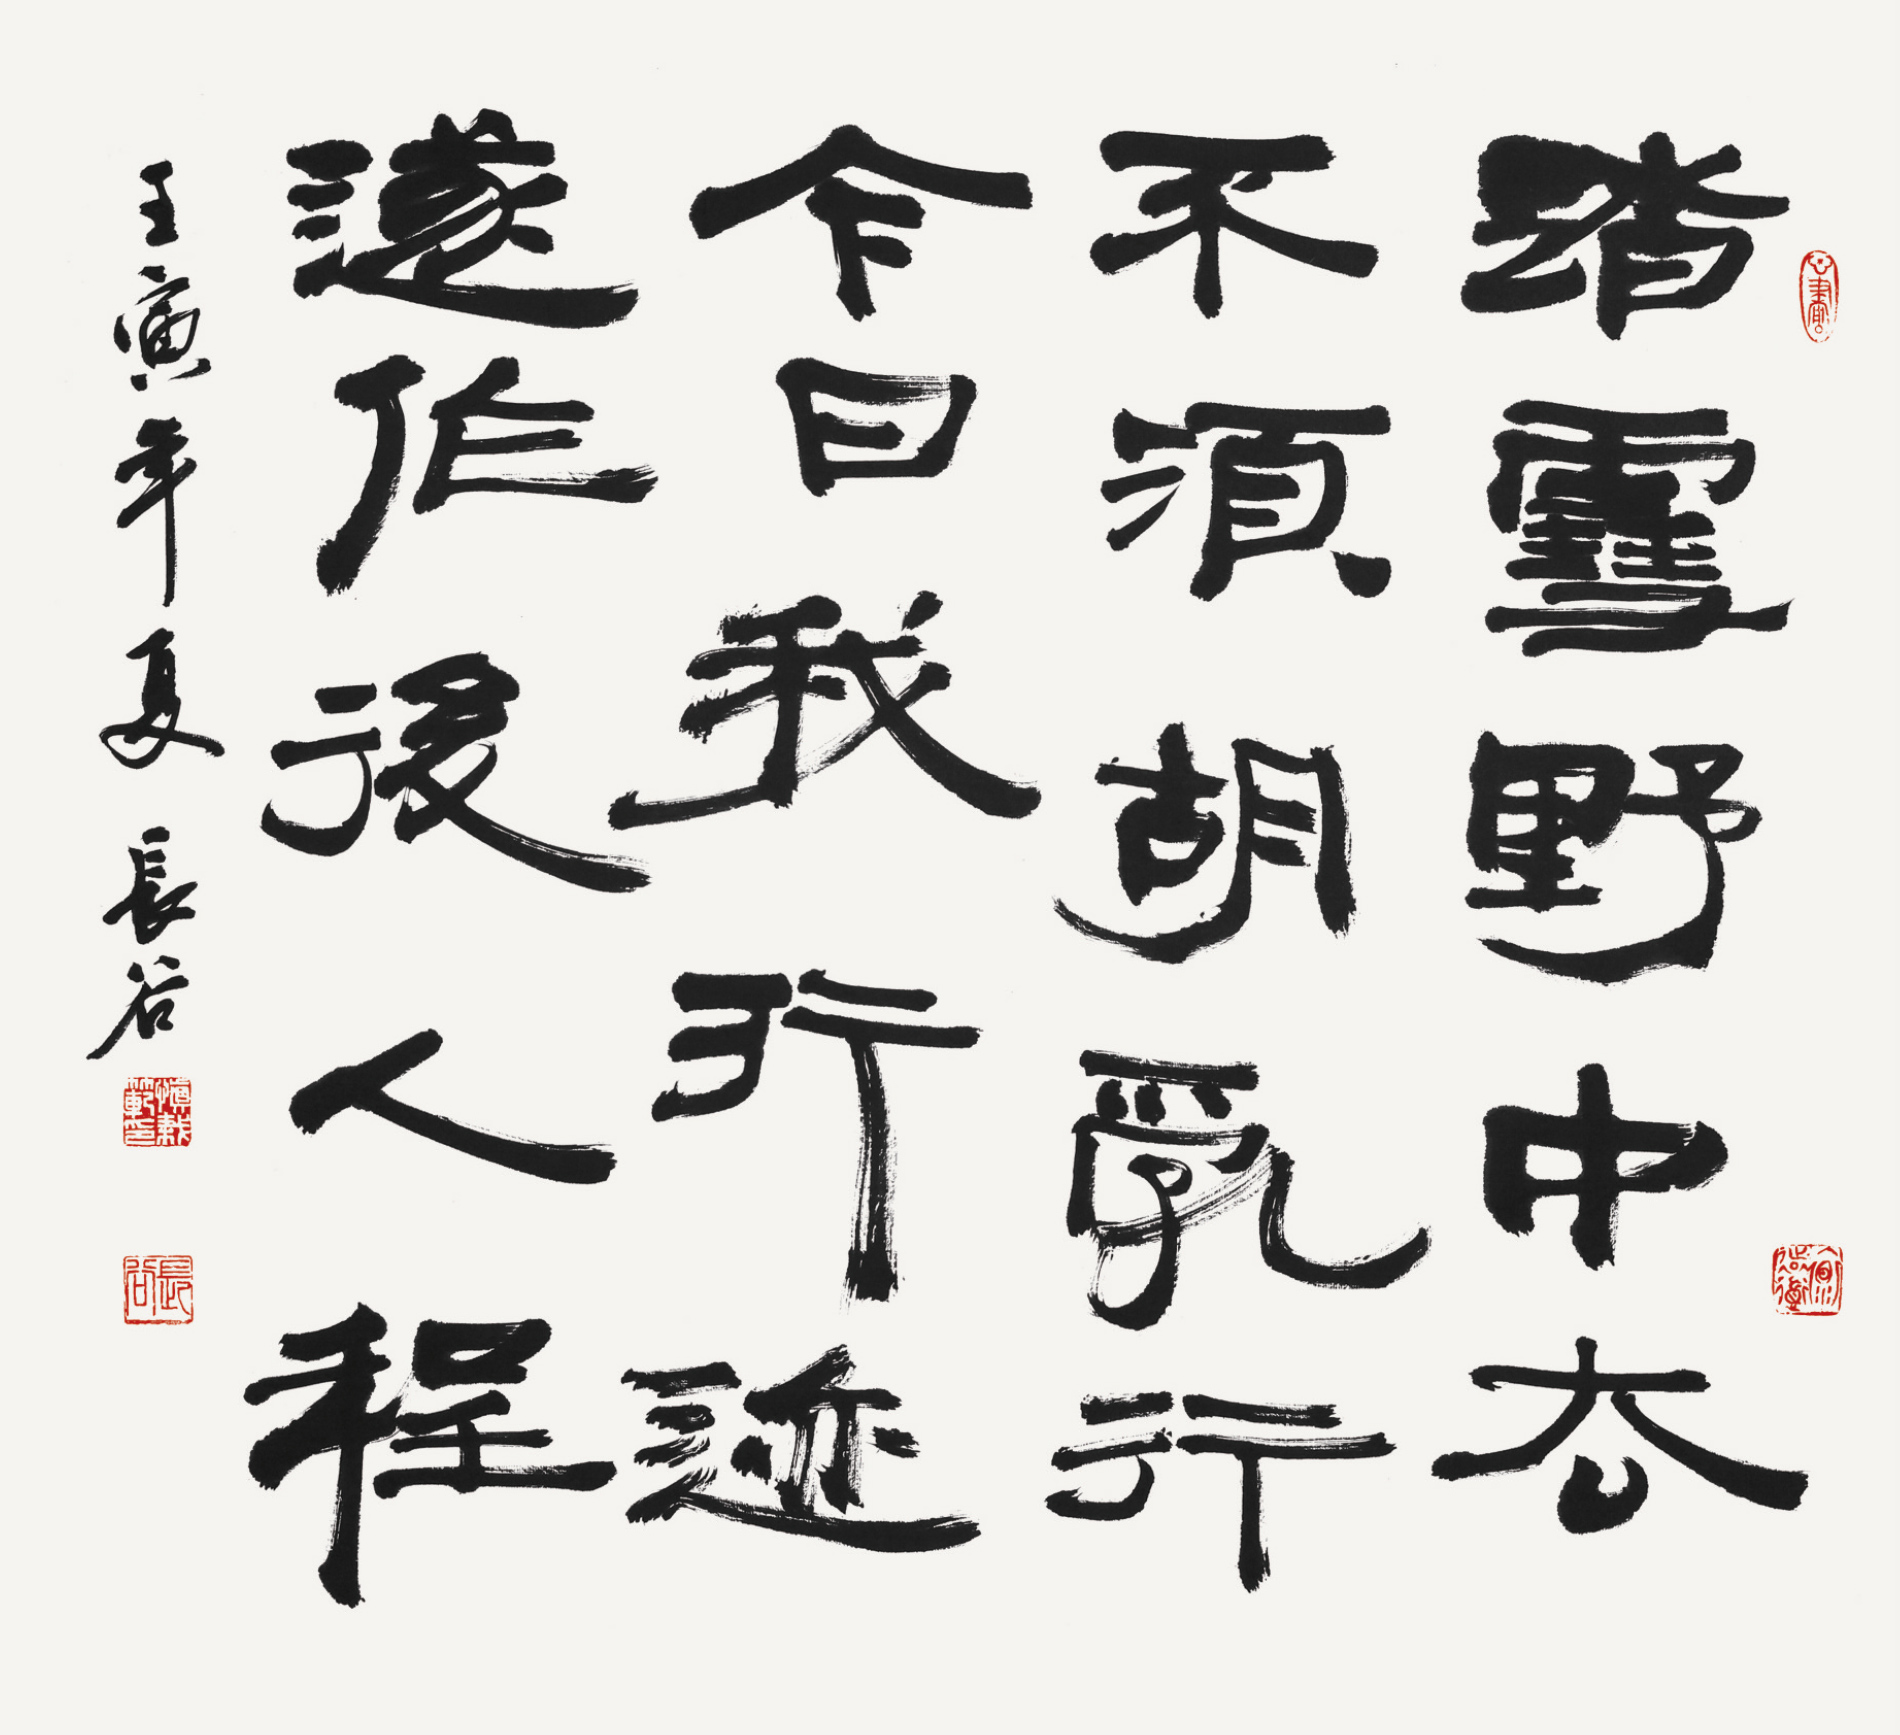 踏雪野中去
不須胡亂行
今日我行迹
遂作後人程
壬寅年夏 長谷
長谷